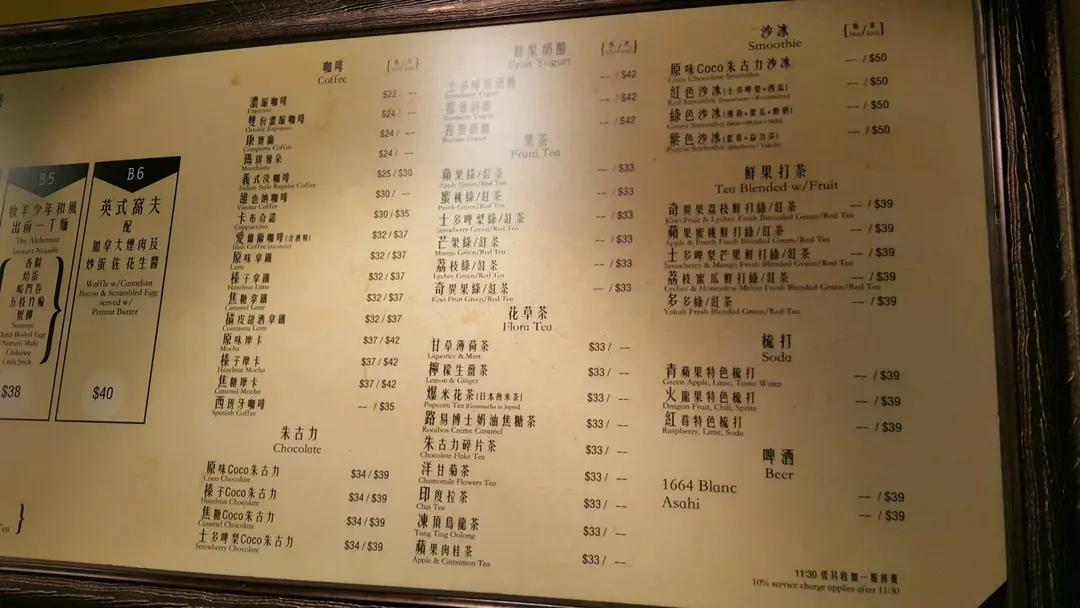 B5
牧羊少年和風
出前一丁麵
The Alchemist
Instant Noodle
香腸
烚蛋
鳴門卷
五枝竹輪
蟹柳
Sausage
Hard-Boiled Egg
Naruto Maki
Chikuwa
Crab Stick
$38
B6
英式窩夫
配
加拿大煙肉及
炒蛋佐花生醬
Waffle w/Canadian
Bacon & Scrambled Egg
served w/
Peanut Butter
$40
咖啡
Coffee
濃縮咖啡 $22 / --
Espresso
雙份濃縮咖啡 $24 / --
Double Espresso
康寶蘭 $24 / --
Compana Coffee
瑪琪雅朵 $24 / --
Macchiato
義式淡咖啡 $25 / $30
Italian Style Regular Coffee
維也納咖啡 $30 / --
Vienna Coffee
卡布奇諾 $30 / $35
Cappuccino
愛爾蘭咖啡(含酒精) $32 / $37
Irish Coffee (Alcoholic)
原味拿鐵 $32 / $37
Latte
榛子拿鐵 $32 / $37
Hazelnut Latte
焦糖拿鐵 $32 / $37
Caramel Latte
橘皮甜酒拿鐵 $32 / $37
Cointreau Latte
原味摩卡 $37 / $42
Mocha
榛子摩卡 $37 / $42
Hazelnut Mocha
焦糖摩卡 $37 / $42
Caramel Mocha
西班牙咖啡 -- / $35
Spanish Coffee
朱古力
Chocolate
原味Coco朱古力 $34 / $39
Coco Chocolate
榛子Coco朱古力 $34 / $39
Hazelnut Chocolate
焦糖Coco朱古力 $34 / $39
Caramel Chocolate
士多啤梨Coco朱古力 $34 / $39
Strawberry Chocolate
鮮果奶酪
Fruit Yogurt
士多啤梨奶酪 -- / $42
Strawberry Yogurt
藍莓奶酪 -- / $42
Blueberry Yogurt
香蕉奶酪 -- / $42
Banana Yogurt
果茶
Fruit Tea
蘋果綠/紅茶 -- / $33
Apple Green/Red Tea
蜜桃綠/紅茶 -- / $33
Peach Green/Red Tea
士多啤梨綠/紅茶 -- / $33
Strawberry Green/Red Tea
芒果綠/紅茶 -- / $33
Mango Green/Red Tea
荔枝綠/紅茶 -- / $33
Lychee Green/Red Tea
奇異果綠/紅茶 -- / $33
Kiwi Fruit Green/Red Tea
花草茶
Flora Tea
甘草薄荷茶 $33 / --
Liquorice & Mint
檸檬生薑茶 $33 / --
Lemon & Ginger
爆米花茶(日本煎米茶) $33 / --
Popcorn Tea (Genmaicha in Japan)
路易博士奶油焦糖茶 $33 / --
Rooibos Crème Caramel
朱古力碎片茶 $33 / --
Chocolate Flake Tea
洋甘菊茶 $33 / --
Chamomile Flowers Tea
印度拉茶 $33 / --
Chai Tea
凍頂烏龍茶 $33 / --
Tung Ting Oolong
蘋果肉桂茶 $33 / --
Apple & Cinnamon Tea
沙冰
Smoothie
原味Coco朱古力沙冰 -- / $50
Coco Chocolate Smoothie
紅色沙冰(士多啤梨+西瓜) -- / $50
Red Smoothie (Strawberry + Watermelon)
綠色沙冰(薄荷+蜜瓜+鮮奶) -- / $50
Green Smoothie (Mint + Melon + Milk)
紫色沙冰(藍莓+益力多) -- / $50
Purple Smoothie (Blueberry + Yakult)
鮮果打茶
Tea Blended w/Fruit
奇異果荔枝鮮打綠/紅茶 -- / $39
Kiwi Fruit & Lychee Fresh Blended Green/Red Tea
蘋果蜜桃鮮打綠/紅茶 -- / $39
Apple & Peach Fresh Blended Green/Red Tea
士多啤梨芒果鮮打綠/紅茶 -- / $39
Strawberry & Mango Fresh Blended Green/Red Tea
荔枝蜜瓜鮮打綠/紅茶 -- / $39
Lychee & Honeydew Melon Fresh Blended Green/Red Tea
多多綠/紅茶 -- / $39
Yakult Fresh Blended Green/Red Tea
梳打
Soda
青蘋果特色梳打 -- / $39
Green Apple, Lime, Tonic Water
火龍果特色梳打 -- / $39
Dragon Fruit, Chili, Sprite
紅莓特色梳打 -- / $39
Raspberry, Lime, Soda
啤酒
Beer
1664 Blanc -- / $39
Asahi -- / $39
11:30 後另收加一服務費
10% service charge applies after 11:30